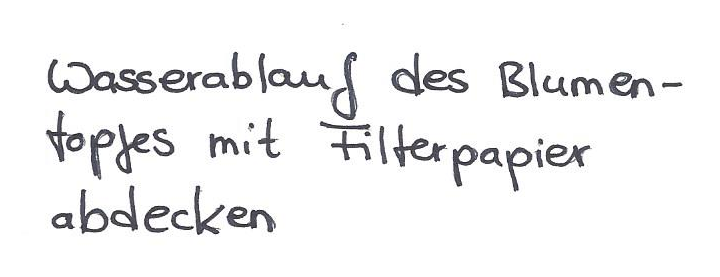 Wasserablauf des Blumen-
topfes mit Filterpapier
abdecken